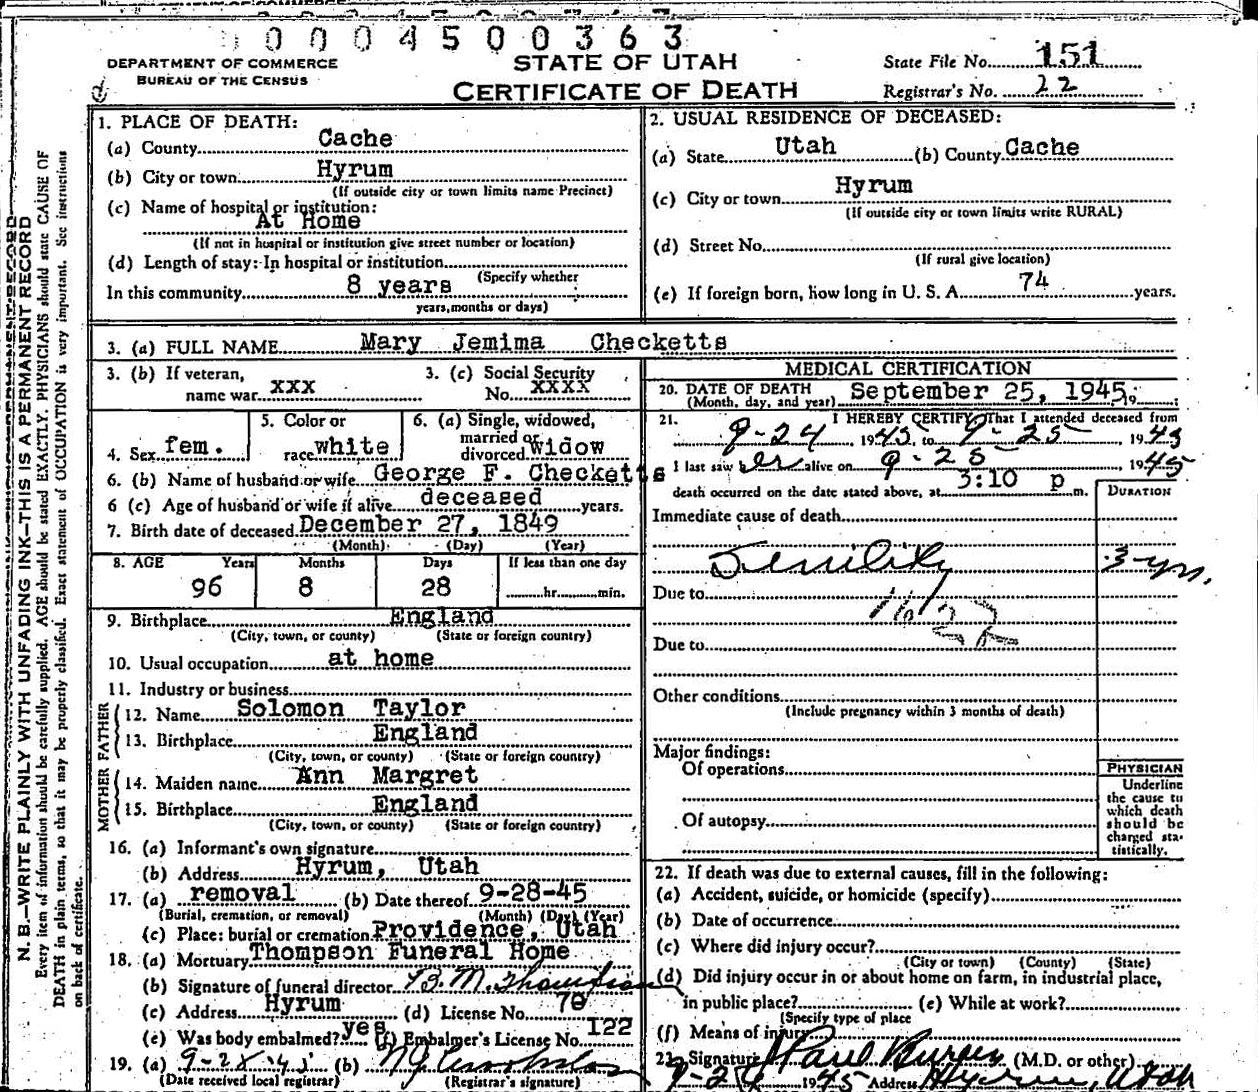 0 0 0 4 5 0 0 3 6 3
DEPARTMENT OF COMMERCE
BUREAU OF THE CENSUS
STATE OF UTAH
CERTIFICATE OF DEATH
State File No. 151
Registrar's No. 22
N. B.—WRITE PLAINLY WITH UNFADING INK—THIS IS A PERMANENT RECORD
Every item of information should be carefully supplied. AGE should be stated EXACTLY. PHYSICIANS should state CAUSE OF
DEATH in plain terms, so that it may be properly classified. Exact statement of OCCUPATION is very important. See instructions
on back of certificate.
1. PLACE OF DEATH:
(a) County Cache
(b) City or town Hyrum
(If outside city or town limits name Precinct)
(c) Name of hospital or institution:
At Home
(If not in hospital or institution give street number or location)
(d) Length of stay: In hospital or institution
(Specify whether
In this community 8 years
years, months or days)
2. USUAL RESIDENCE OF DECEASED:
(a) State Utah (b) County Cache
(c) City or town Hyrum
(If outside city or town limits write RURAL)
(d) Street No.
(If rural give location)
(e) If foreign born, how long in U. S. A. 74 years.
3. (a) FULL NAME Mary Jemima Checketts
3. (b) If veteran, name war xxx
3. (c) Social Security No. XXXX
4. Sex fem.
5. Color or race white
6. (a) Single, widowed, married or divorced Widow
6. (b) Name of husband or wife George F. Checketts
6 (c) Age of husband or wife if alive deceased years.
7. Birth date of deceased December 27, 1849
(Month) (Day) (Year)
8. AGE Years Months Days If less than one day
96 8 28 hr. min.
9. Birthplace England
(City, town, or county) (State or foreign country)
10. Usual occupation at home
11. Industry or business
FATHER
12. Name Solomon Taylor
13. Birthplace England
(City, town, or county) (State or foreign country)
MOTHER
14. Maiden name Ann Margret
15. Birthplace England
(City, town, or county) (State or foreign country)
16. (a) Informant's own signature
(b) Address Hyrum, Utah
17. (a) removal (b) Date thereof 9-28-45
(Burial, cremation, or removal) (Month) (Day) (Year)
(c) Place: burial or cremation Providence, Utah
18. (a) Mortuary Thompson Funeral Home
(b) Signature of funeral director B. M. Thompson
(c) Address Hyrum (d) License No. 70
(e) Was body embalmed? yes (f) Embalmer's License No. 122
19. (a) 9-28-45 (b)
(Date received local registrar) (Registrar's signature)
MEDICAL CERTIFICATION
20. DATE OF DEATH September 25, 1945, 19
(Month, day, and year)
21. I HEREBY CERTIFY, That I attended deceased from
9-24, 1945, to 9-25 1945
I last saw her alive on 9-25, 1945
death occurred on the date stated above, at 3:10 p m.
DURATION
Immediate cause of death
Senility 3 yrs.
Due to
Due to
Other conditions
(Include pregnancy within 3 months of death)
Major findings:
Of operations
Of autopsy
PHYSICIAN
Underline
the cause to
which death
should be
charged sta-
tistically.
22. If death was due to external causes, fill in the following:
(a) Accident, suicide, or homicide (specify)
(b) Date of occurrence
(c) Where did injury occur?
(City or town) (County) (State)
(d) Did injury occur in or about home on farm, in industrial place,
in public place? (e) While at work?
(Specify type of place
(f) Means of injury
23. Signature (M.D. or other)
1945 Address Hyrum, Utah